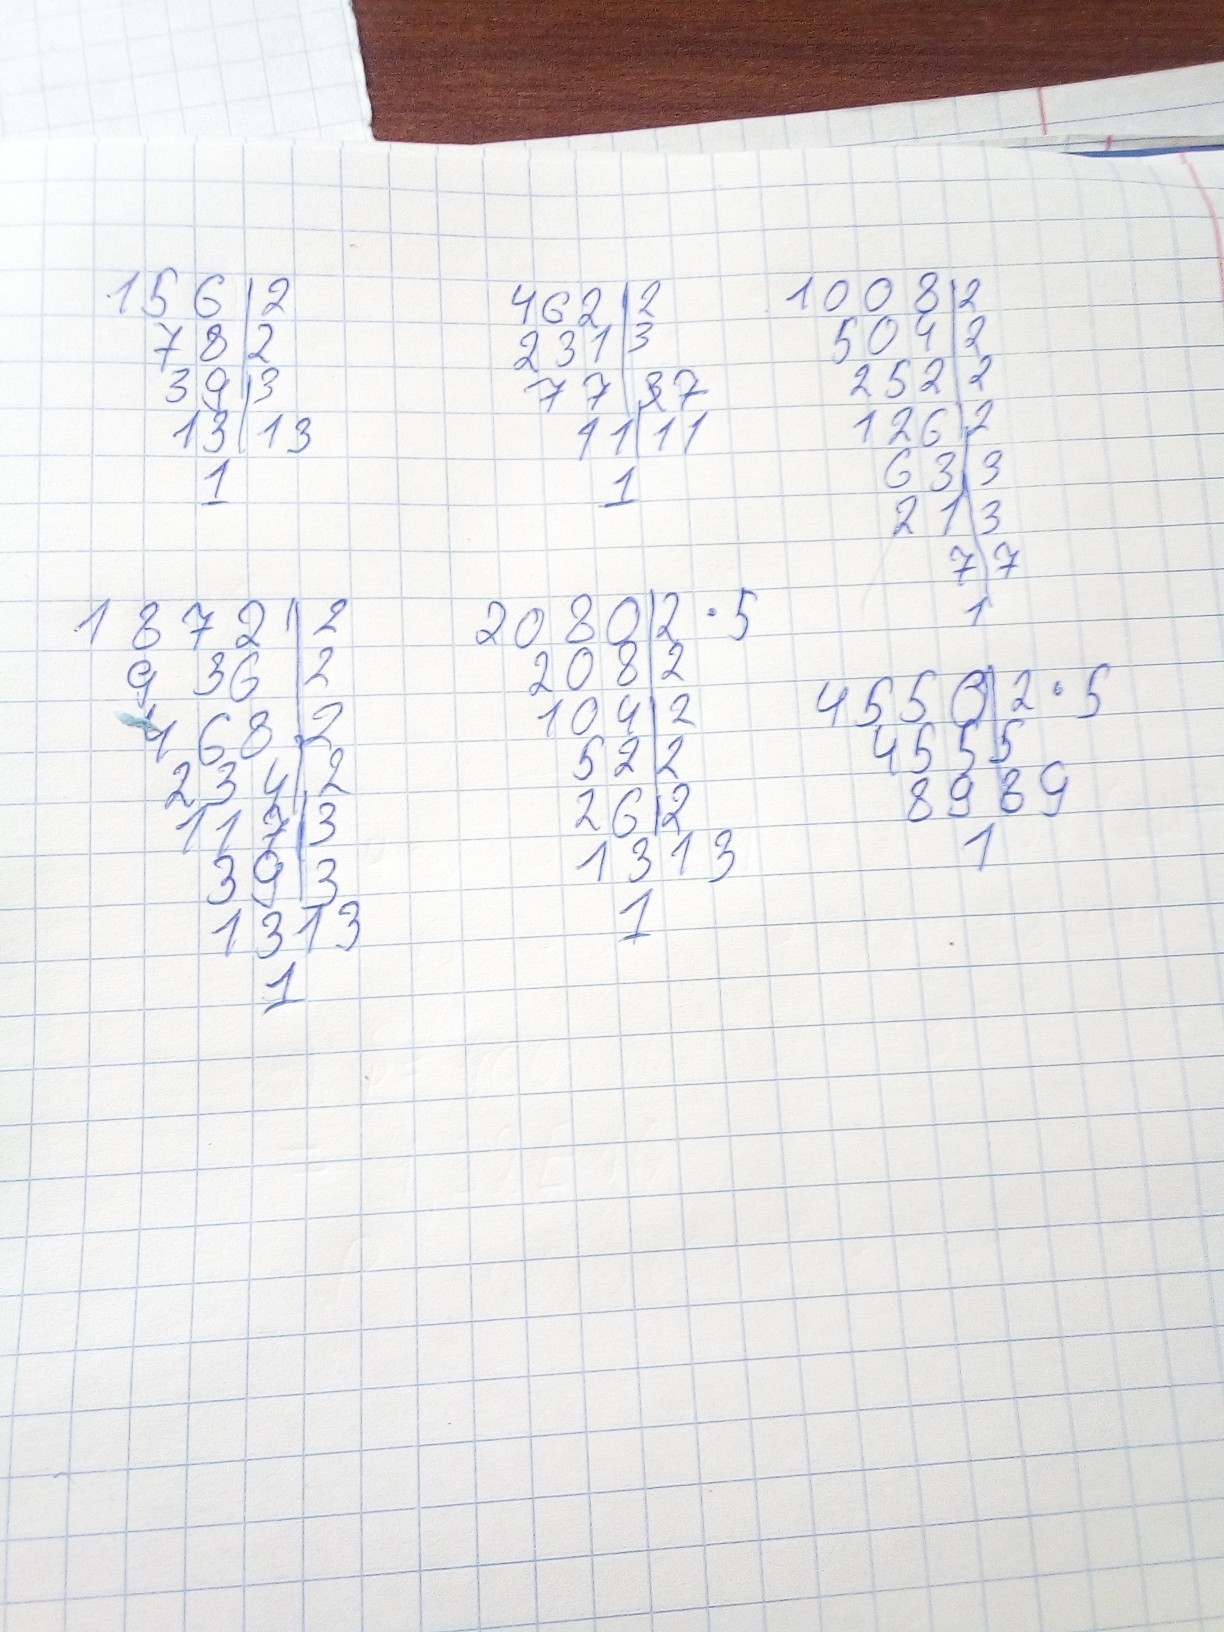 156|2
78|2
39|3
13|13
1
462|2
231|3
77|7
11|11
1
1008|2
504|2
252|2
126|2
63|3
21|3
7|7
1
1872|2
936|2
468|2
234|2
117|3
39|3
13|13
1
2080|2·5
208|2
104|2
52|2
26|2
13|13
1
4550|2·5
455|5
89|89
1